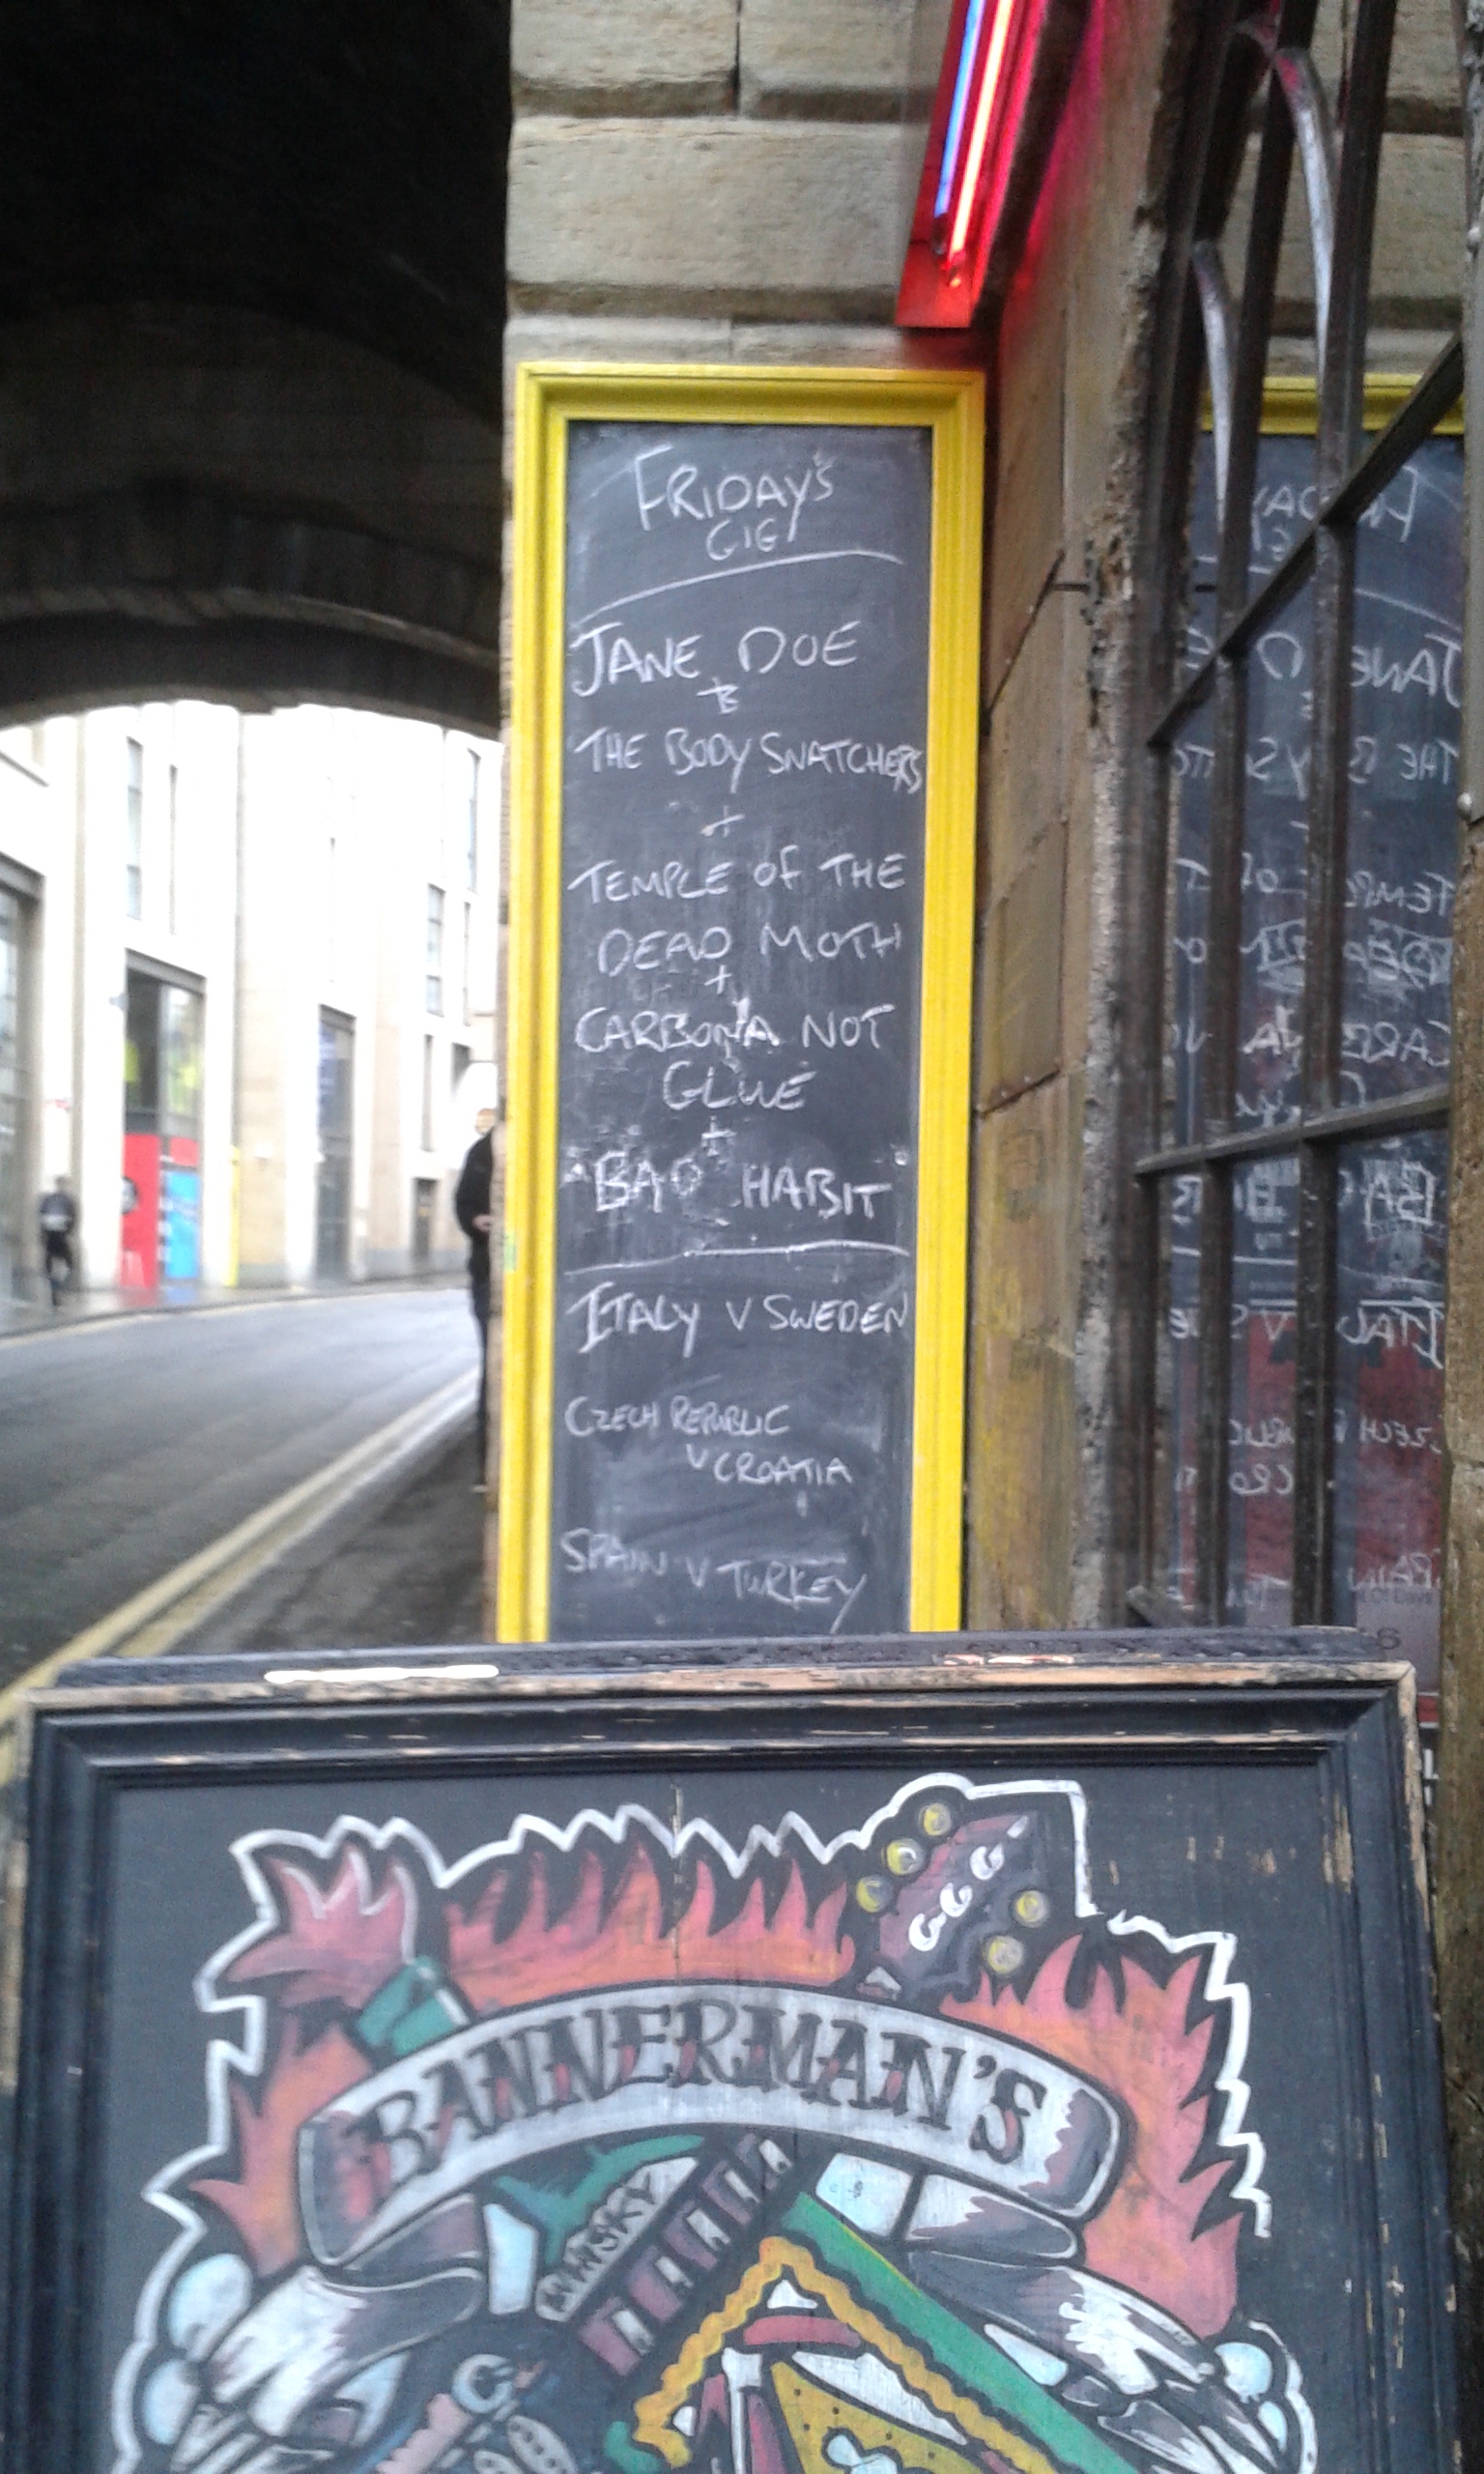 FRIDAY'S
GIG
JANE DOE
&
THE BODY SNATCHERS
+
TEMPLE OF THE
DEAD MOTH
+
CARBONA NOT
GLUE
+
BAD HABIT
ITALY V SWEDEN
CZECH REPUBLIC
V CROATIA
SPAIN V TURKEY
BANNERMAN'S
WHISKY